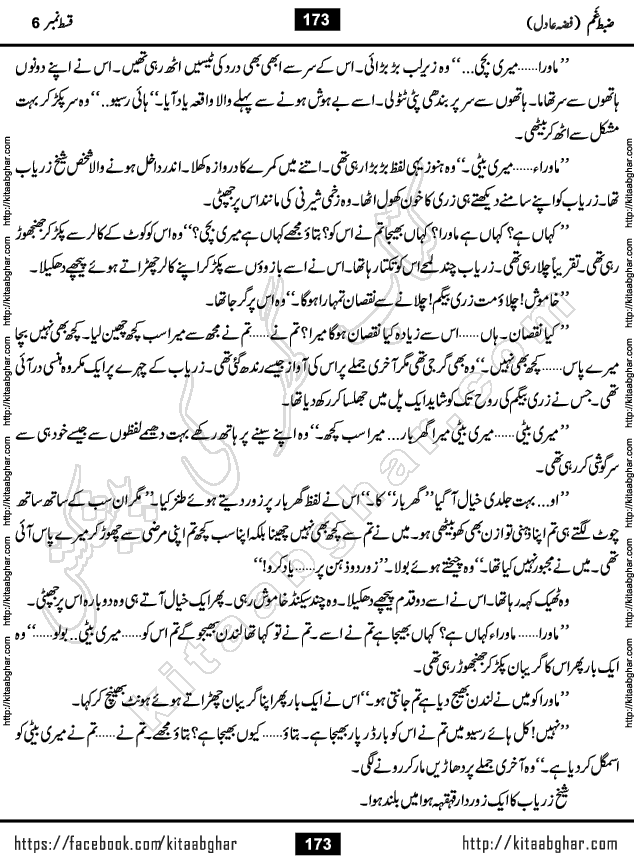 ضبطِ غم (فضہ عادل)
173
قسط نمبر 6
’’ماورا……میری بچی…‘‘ وہ زیرِلب بڑبڑائی۔ اس کے سر سے ابھی بھی درد کی ٹیسیں اٹھ رہی تھیں۔ اس نے اپنے دونوں
ہاتھوں سے سر تھاما۔ ہاتھوں سے سر پر بندھی پٹی ٹٹولی۔ اسے بے ہوش ہونے سے پہلے والا واقعہ یاد آیا۔ ’’ہائی رسیو..‘‘ وہ سر پکڑ کر بہت
مشکل سے اٹھ کر بیٹھی۔
’’ماوراء……میری بیٹی۔‘‘ وہ ہنوز یہی لفظ بڑبڑا رہی تھی۔ اتنے میں کمرے کا دروازہ کھلا۔ اندر داخل ہونے والا شخص شیخ زریاب
تھا۔ زریاب کو اپنے سامنے دیکھتے ہی زری کا خون کھول اٹھا۔ وہ زخمی شیرنی کی مانند اس پر جھپٹی۔
’’کہاں ہے؟ کہاں ہے ماورا؟ کہاں بھیجا تم نے اس کو؟ بتاؤ مجھے کہاں ہے میری بچی؟‘‘ وہ اس کو کوٹ کے کالر سے پکڑ کر جھنجھوڑ
رہی تھی۔ تقریباً چلا رہی تھی۔ زریاب چند لمحے اس کو تکتا رہا تھا۔ اس نے اسے بازوؤں سے پکڑ کر اپنے کالر چھڑاتے ہوئے پیچھے دھکیلا۔
’’خاموش! چلاؤ مت زری بیگم! چلانے سے نقصان تمہارا ہو گا۔‘‘ وہ اس پر گرجا تھا۔
’’کیا نقصان۔ ہاں……اس سے زیادہ کیا نقصان ہوگا میرا؟ تم نے……تم نے مجھ سے میرا سب کچھ چھین لیا۔ کچھ بھی نہیں بچا
میرے پاس……کچھ بھی نہیں۔‘‘ وہ بھی گرجی تھی مگر آخری جملے پر اس کی آواز جیسے رندھ گئی تھی۔ زریاب کے چہرے پر ایک مکروہ ہنسی در آئی
تھی۔ جس نے زری بیگم کی روح تک کو شاید ایک پل میں جھلسا کر رکھ دیا تھا۔
’’میری بیٹی……میری بیٹی میرا گھربار…میرا سب کچھ۔‘‘ وہ اپنے سینے پر ہاتھ رکھے بہت دھیمے لفظوں سے جیسے خود ہی سے
سرگوشی کر رہی تھی۔
’’او… بہت جلدی خیال آ گیا ’’گھر بار‘‘ کا۔‘‘ اس نے لفظ گھر بار پر زور دیتے ہوئے طنز کیا۔ ’’مگر ان سب کے ساتھ ساتھ
چوٹ لگتے ہی تم اپنا ذہنی توازن بھی کھو بیٹھی ہو۔ میں نے تم سے کچھ بھی نہیں چھینا بلکہ اپنا سب کچھ تم اپنی مرضی سے چھوڑ کر میرے پاس آئی
تھی۔ میں نے مجبور نہیں کیا تھا۔‘‘ وہ چیختے ہوئے بولا۔ ’’زور دو ذہن پر……یاد کرو!‘‘
وہ ٹھیک کہہ رہا تھا۔ اس نے اسے دو قدم پیچھے دھکیلا۔ وہ چند سیکنڈ خاموش رہی۔ پھر ایک خیال آتے ہی وہ دوبارہ اس پر جھپٹی۔
’’ماورا……ماوراء کہاں ہے؟ کہاں بھیجا ہے تم نے اسے۔ تم نے تو کہا تھا لندن بھیجو گے تم اس کو……میری بیٹی.. بولو……‘‘ وہ
ایک بار پھر اس کا گریبان پکڑ کر جھنجھوڑ رہی تھی۔
’’ماورا کو میں نے لندن بھیج دیا ہے تم جانتی ہو۔‘‘ اس نے ایک بار پھر اپنا گریبان چھڑاتے ہوئے ہونٹ بھینچ کر کہا۔
’’نہیں! کل ہائے رسیو میں تم نے اس کو بارڈر پار بھیجا ہے۔ بتاؤ……کیوں بھیجا ہے؟ بتاؤ مجھے۔ تم نے……تم نے میری بیٹی کو
اسمگل کر دیا ہے۔‘‘ وہ آخری جملے پر دھاڑیں مار کر رونے لگی۔
شیخ زریاب کا ایک زوردار قہقہہ ہوا میں بلند ہوا۔
کتاب گھر کی پیشکش
kitaabghar.com
http://kitaabghar.com http://kitaabghar.com http://kitaabghar.com http://kitaabghar.com http://kitaabghar.com http://kitaabghar.com
http://kitaabghar.com http://kitaabghar.com http://kitaabghar.com http://kitaabghar.com http://kitaabghar.com http://kitaabghar.com
https://facebook.com/kitaabghar
173
http://kitaabghar.com